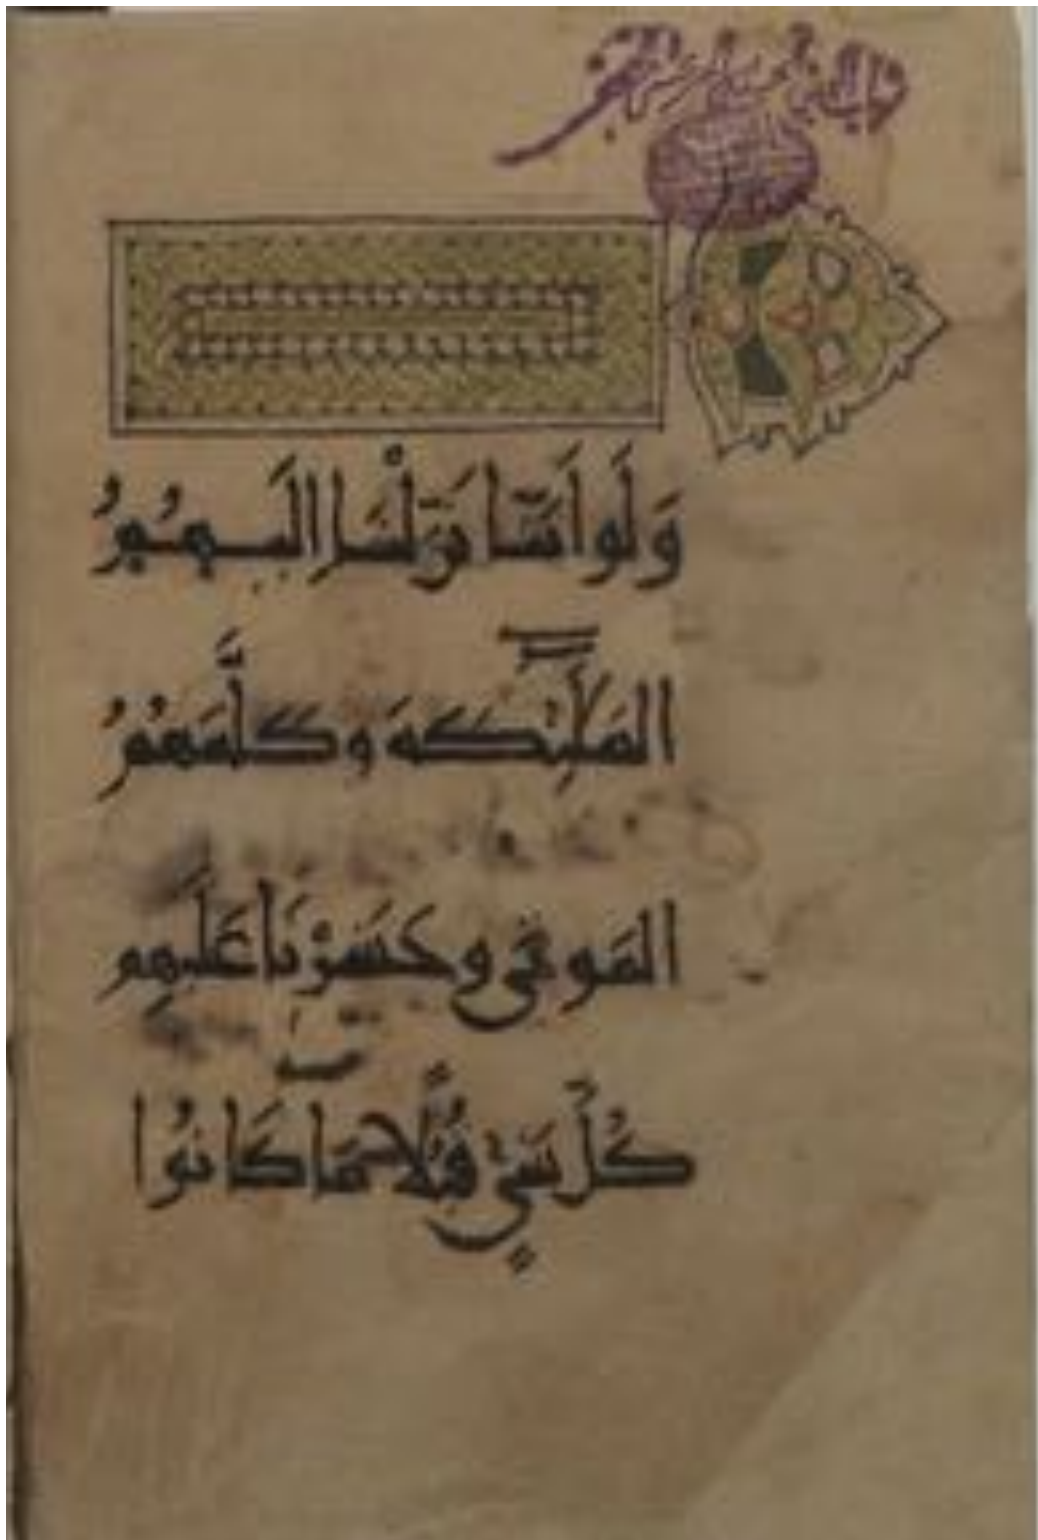 وَلَو اَنَّنا نَزَّلْنَا اِلَيهِمُ
المَلٰٓئِكَهَ وكَلَّمَهُمُ
المَوتى وحَشَرْنَا عَلَيهِم
كُلَّ شَيءٍ قُبُلًا مَّا كَانُوا